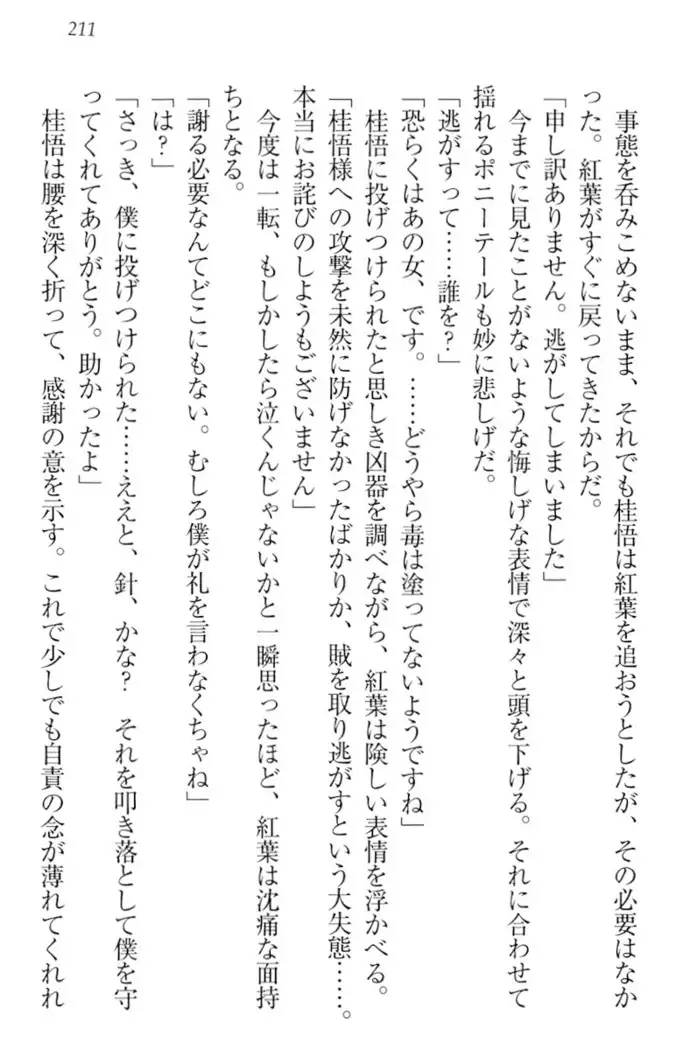 211
事態を呑みこめないまま、それでも桂悟は紅葉を追おうとしたが、その必要はなか
った。紅葉がすぐに戻ってきたからだ。
「申し訳ありません。逃がしてしまいました」
今までに見たことがないような悔しげな表情で深々と頭を下げる。それに合わせて
揺れるポニーテールも妙に悲しげだ。
「逃がすって……誰を？」
「恐らくはあの女、です。……どうやら毒は塗ってないようですね」
桂悟に投げつけられたと思しき凶器を調べながら、紅葉は険しい表情を浮かべる。
「桂悟様への攻撃を未然に防げなかったばかりか、賊を取り逃がすという大失態……。
本当にお詫びのしようもございません」
今度は一転、もしかしたら泣くんじゃないかと一瞬思ったほど、紅葉は沈痛な面持
ちとなる。
「謝る必要なんてどこにもない。むしろ僕が礼を言わなくちゃね」
「は？」
「さっき、僕に投げつけられた……ええと、針、かな？　それを叩き落として僕を守
ってくれてありがとう。助かったよ」
桂悟は腰を深く折って、感謝の意を示す。これで少しでも自責の念が薄れてくれれ